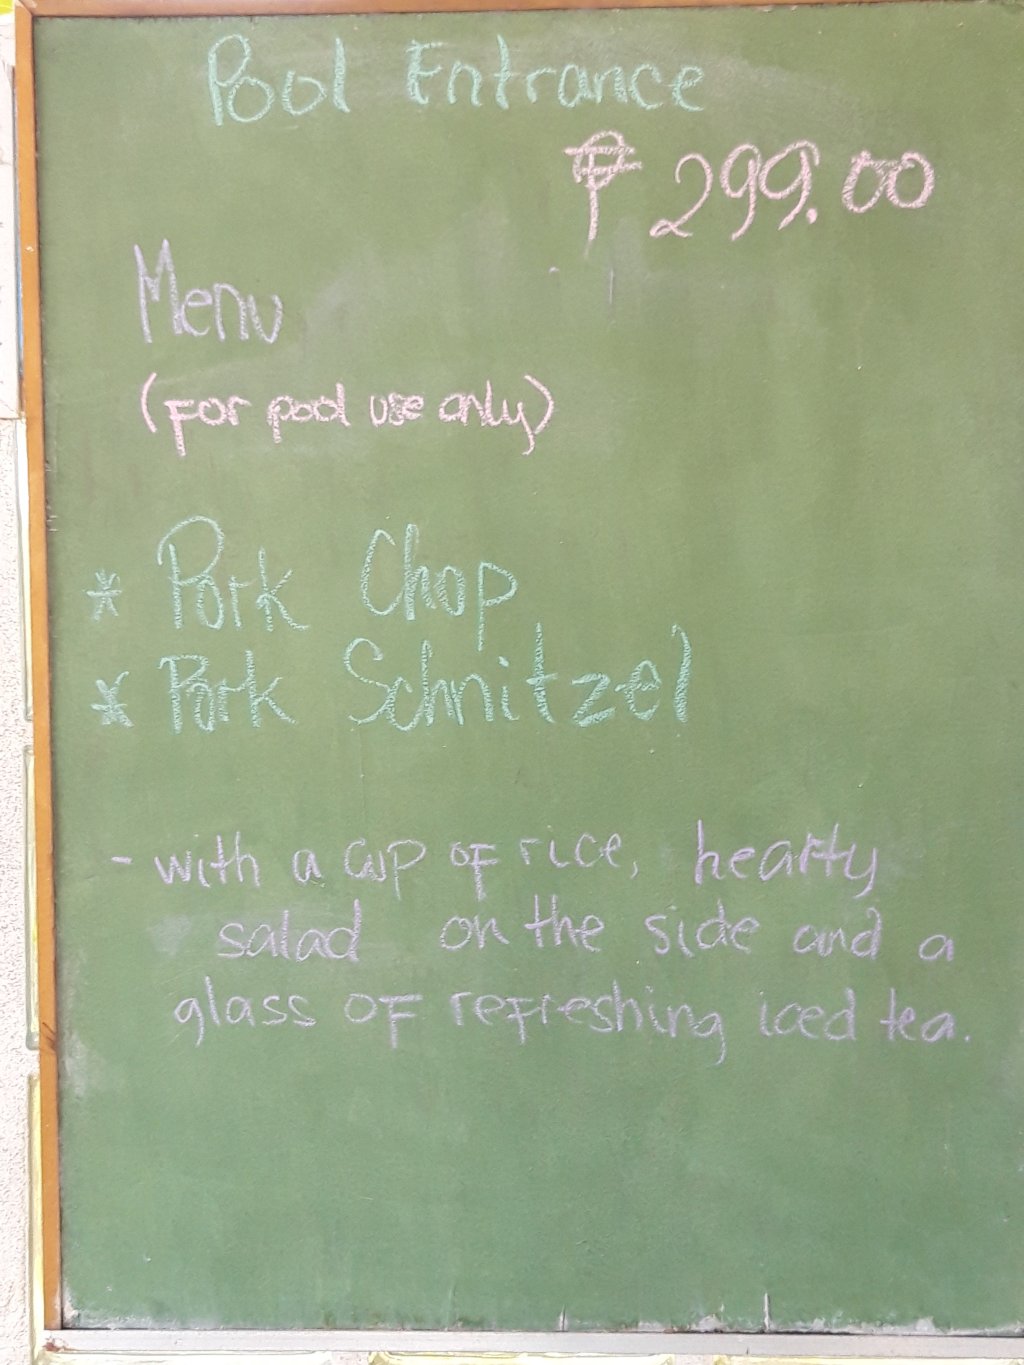 Pool Entrance
₱ 299.00
Menu
(for pool use only)
* Pork Chop
* Pork Schnitzel
- with a cup of rice, hearty
salad on the side and a
glass of refreshing iced tea.